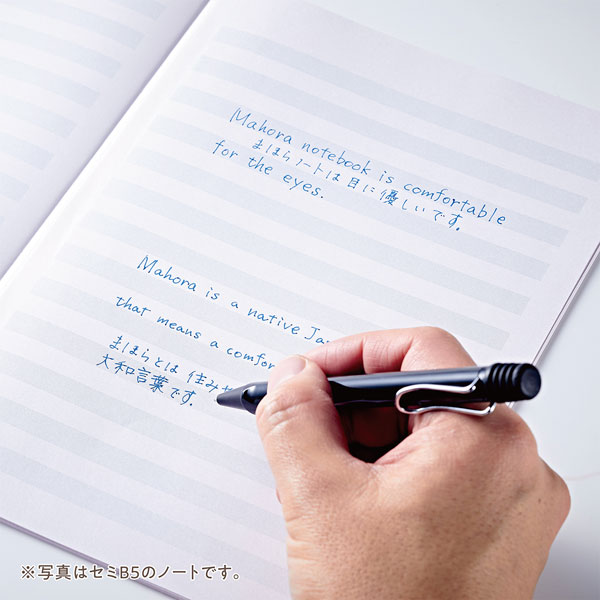 Mahora notebook is comfortable
まほらノートは目に優しいです。
for the eyes.
Mahora is a native Ja
that means a comfor
まほらとは 住みや
大和言葉です。
※写真はセミB5のノートです。